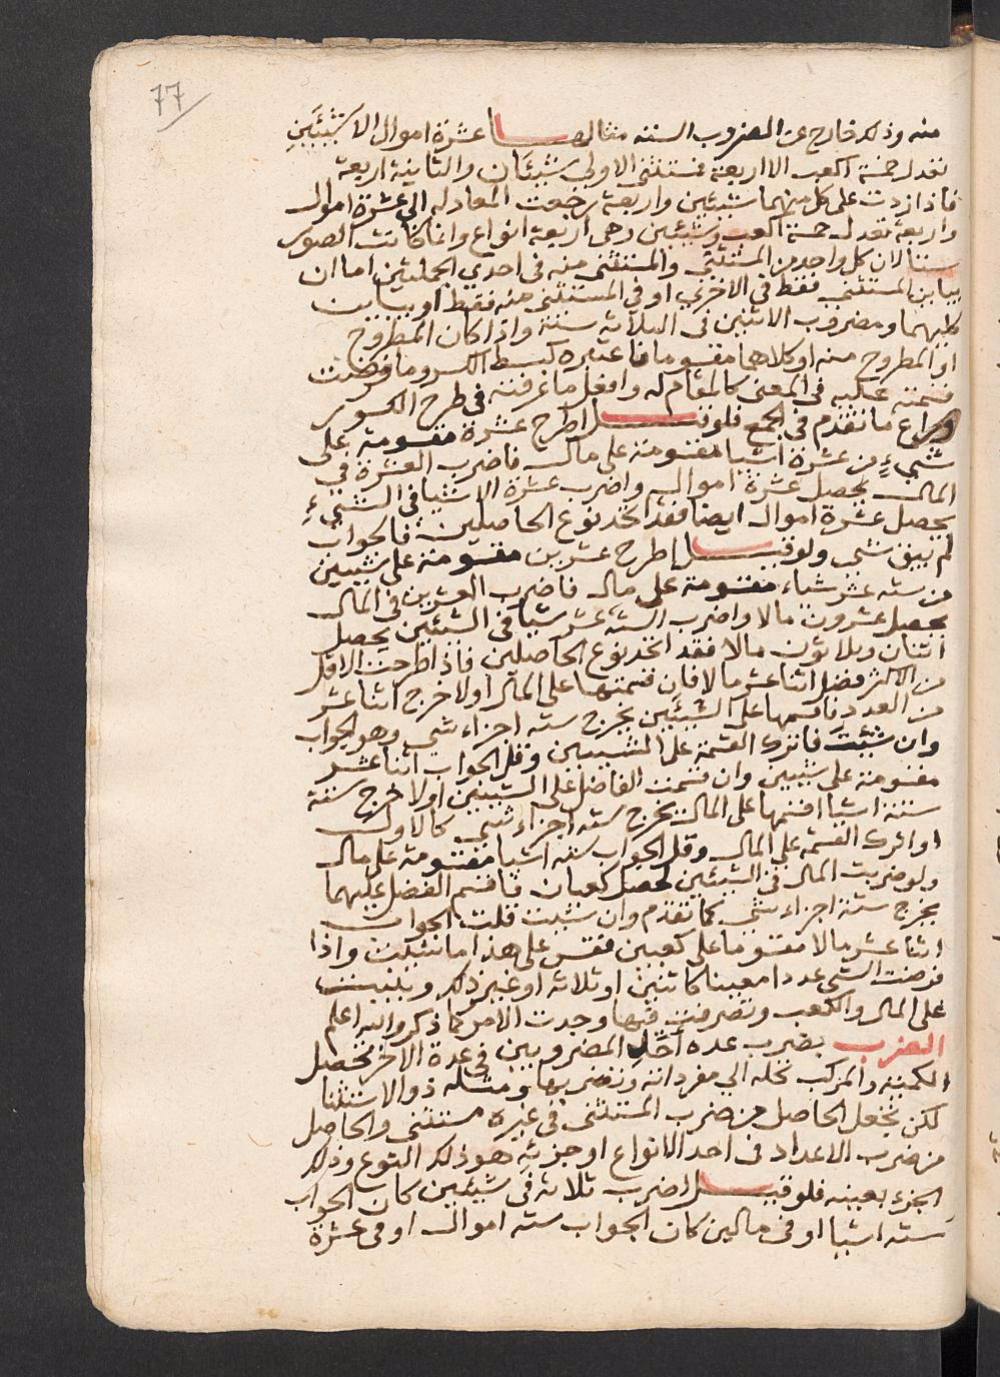 77
منه وذلك خارج عن الضروب الستة مثالها عشرة اموال الا شيئين
تعدل خمسة اكعب الا اربعة فمستثنى الاولى شيئان والثانية اربعة
فاذا زدت على كل منهما شيئين واربعة رجعت المعادله الى عشرة اموال
واربعة تعدل خمسة اكعب وشيئين وهى اربعة انواع وانما كانت الصور
ستا لان كل واحد من المستثنى والمستثنى منه فى احدي الجملتين اما ان
يباين المستثنى فقط فى الاخري او فى المستثنى منه فقط او يباين
كليهما ومضروب الاثنين فى الثلاثة ستة واذا كان المطروح
او المطروح منه او كلاهما مقسوما فاعتبره كبسط الكسر وما فرضت
قسمته عليه فى المعنى كالمقام له وافعل ما عرفته فى طرح الكسور
وراع ما تقدم فى الجمع فلو قيل اطرح عشرة مقسومة على
شيء من عشرة اشيا مقسومة على مال فاضرب العشرة في
المال يحصل عشرة اموال واضرب عشرة الاشيا فى الشيء
يحصل عشرة اموال ايضا فقد اتحد نوع الحاصلين فالجواب
لم يبق شى ولو قيل اطرح عشرين مقسومة على شيئين
من سته عشر شياء مقسومة على مال فاضرب العشرين فى المال
يحصل عشرون مالا واضرب الستة عشر شيا فى الشيئين يحصل
اثنان وثلاثون مالا فقد اتحد نوع الحاصلين فاذا طرحت الاقل
من الاكثر فضل اثنا عشر مالا فان قسمتها على المال اولا خرج اثنا عشر
من العدد فاقسمها على الشيئين يخرج سته اجزاء شى وهو الجواب
وان شئت فاترك القسمة على الشيئين وقل الجواب اثنا عشر
مقسومة على شيئين وان قسمت الفاضل على الشيئين اولا خرج ستة
ستة اشيا اقسمها على المال يخرج سته اجزاء شى كالاول
او اترك القسمة على المال وقل الجواب سته اشيا مقسومة على مال
ولو ضربت المال فى الشيئين لحصل كعبان فاقسم الفضل عليهما
يخرج ستة اجزاء شى كما تقدم وان شئت قلت الجواب
اثنا عشر مالا مقسوما على كعبين فقس على هذا ما شئت واذا
فرضت الشى عددا معينا كاثنين او ثلاثه او غير ذلك وبنيت
على المال والكعب وتصرفت فيها وجدت الامر كما ذكر والله اعلم
الضرب يضرب عده احد المضروبين فى عدة الاخر تحصل
الكمية والمركب تحله الي مفرداته وتضربها ومثله ذو الاستثنا
لكن تجعل الحاصل من ضرب المستثنى فى غيره مستثنى والحاصل
من ضرب الاعداد فى احد الانواع او جزئه هو ذلك النوع وذلك
الجزء بعينه فلو قيل اضرب ثلاثة فى شيئين كان الجواب
سته اشيا او فى مالين كان الجواب سته اموال او فى عشرة